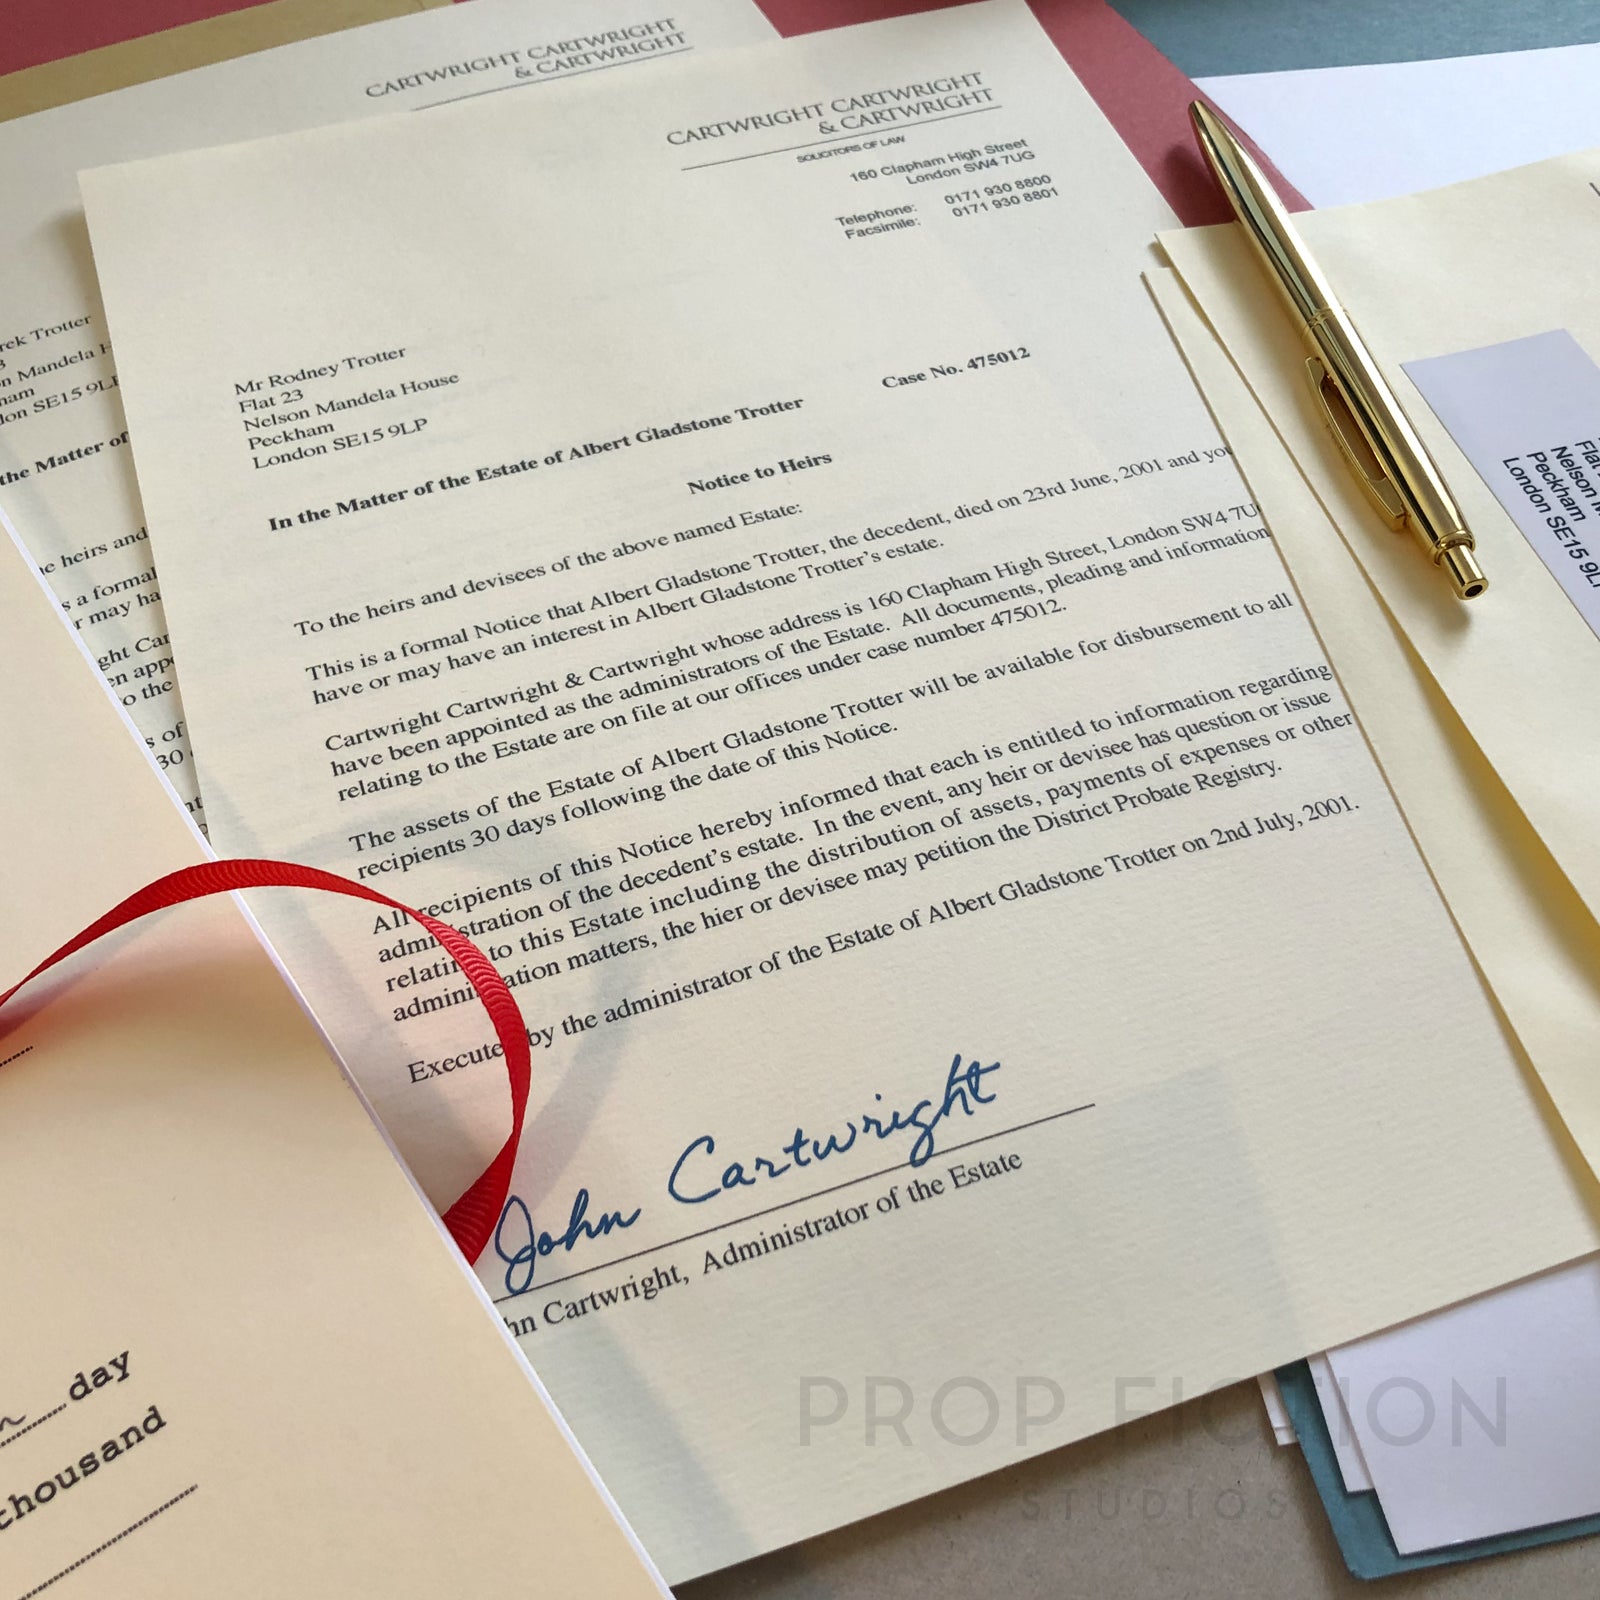 CARTWRIGHT CARTWRIGHT
& CARTWRIGHT
CARTWRIGHT CARTWRIGHT
& CARTWRIGHT
SOLICITORS OF LAW
160 Clapham High Street
London SW4 7UG
Telephone: 0171 930 8800
Facsimile: 0171 930 8801
Mr Rodney Trotter
Flat 23
Nelson Mandela House
Peckham
London SE15 9LP
Case No. 475012
In the Matter of the Estate of Albert Gladstone Trotter
Notice to Heirs
To the heirs and devisees of the above named Estate:
This is a formal Notice that Albert Gladstone Trotter, the decedent, died on 23rd June, 2001 and you
have or may have an interest in Albert Gladstone Trotter's estate.
Cartwright Cartwright & Cartwright whose address is 160 Clapham High Street, London SW4 7U
have been appointed as the administrators of the Estate. All documents, pleading and information
relating to the Estate are on file at our offices under case number 475012.
The assets of the Estate of Albert Gladstone Trotter will be available for disbursement to all
recipients 30 days following the date of this Notice.
All recipients of this Notice hereby informed that each is entitled to information regarding
administration of the decedent's estate. In the event, any heir or devisee has question or issue
relating to this Estate including the distribution of assets, payments of expenses or other
administration matters, the hier or devisee may petition the District Probate Registry.
Executed by the administrator of the Estate of Albert Gladstone Trotter on 2nd July, 2001.
John Cartwright
hn Cartwright, Administrator of the Estate
rek Trotter
3
n Mandela H
ham
lon SE15 9LP
the Matter of
e heirs and
s a formal
r may ha
ght Car
en appo
o the
s of
30
nt
day
thousand
Flat
Nelson M
Peckham
London SE15 9LP
PROP FICTION
STUDIOS